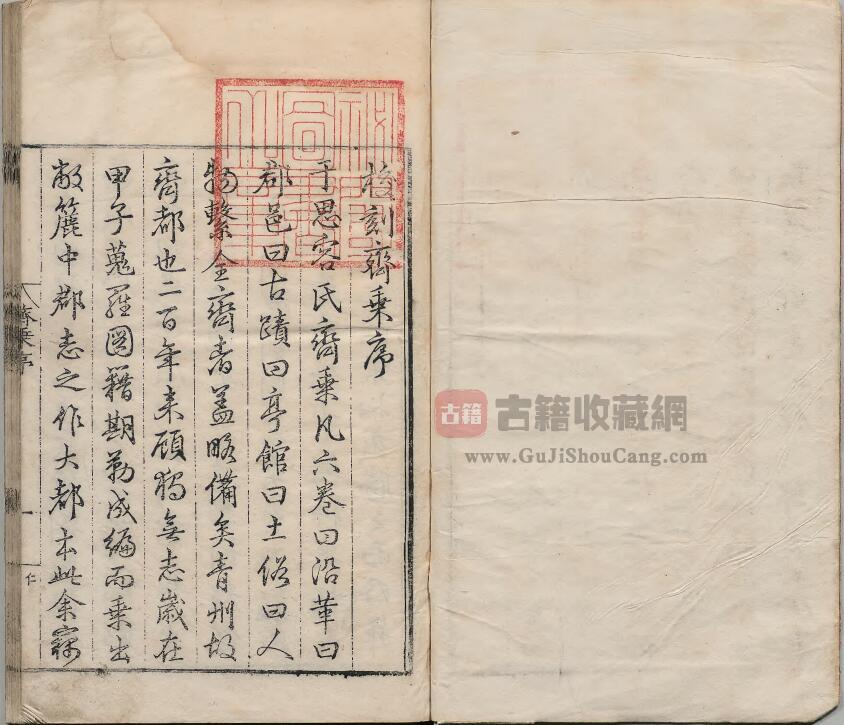 校刻齊乘序
于思容氏齊乘凡六卷曰沿革曰
郡邑曰古蹟曰亭館曰土俗曰人
物繫全齊者蓋略備矣青州故
齊都也二百年来顧獨無志歲在
甲子蒐羅圖籍期勒成編而乘出
敝簏中郡志之作大都本此余竊
齊乘序
一
仁
古籍
古籍收藏網
www.GuJiShouCang.com